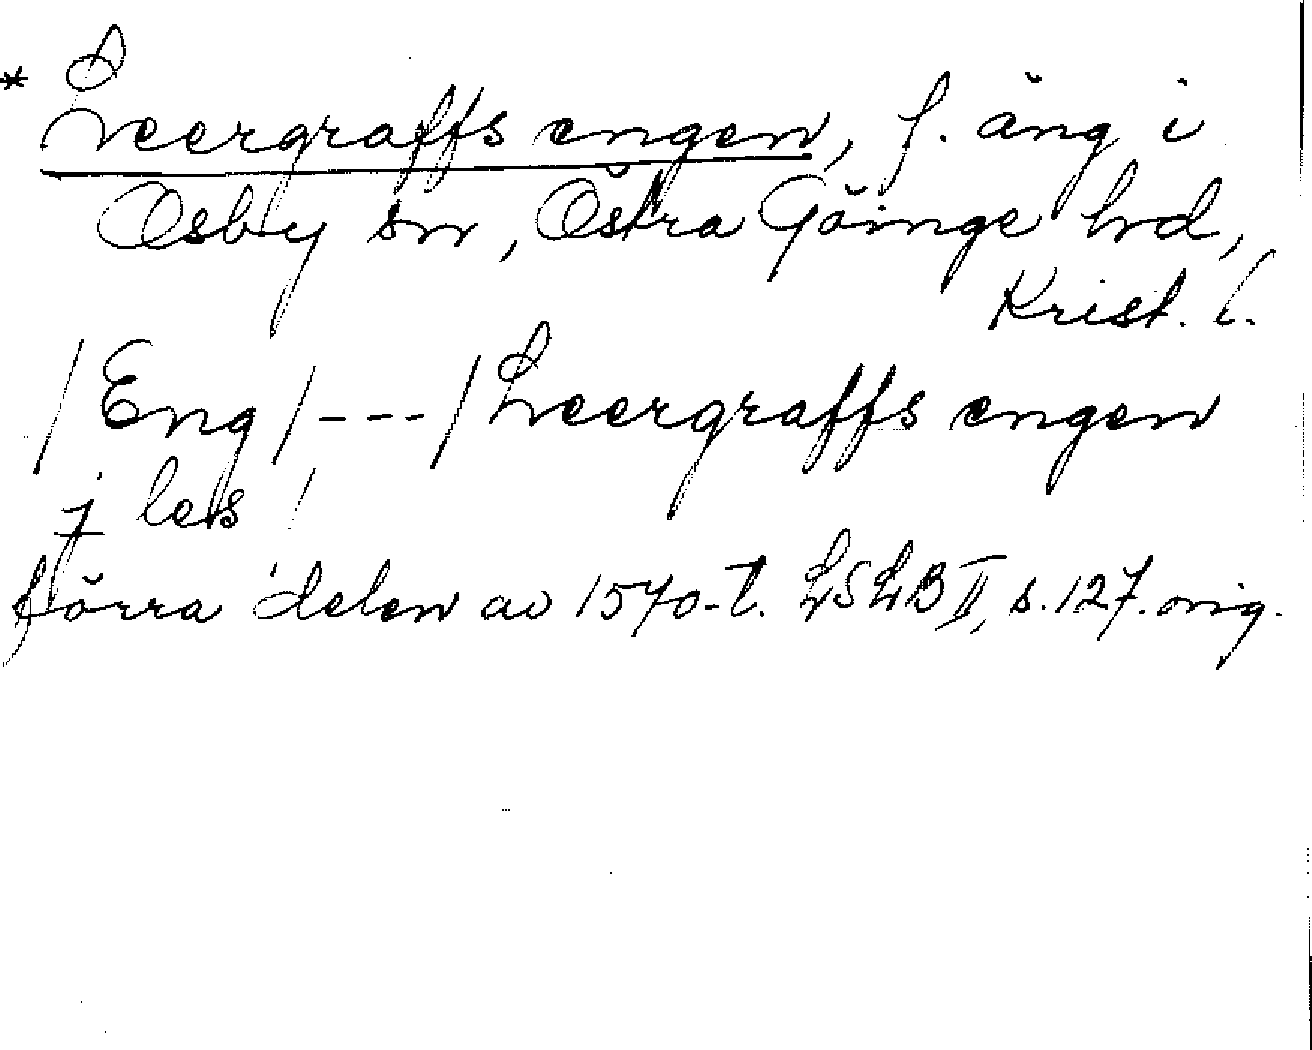 * Leergraffs engen, f. äng i
Osby sn, Östra Göinge hd,
Krist. l.
/Eng/---/Leergraffs engen
j les /
förra delen av 1570-t. LSLB II, s. 127. orig.